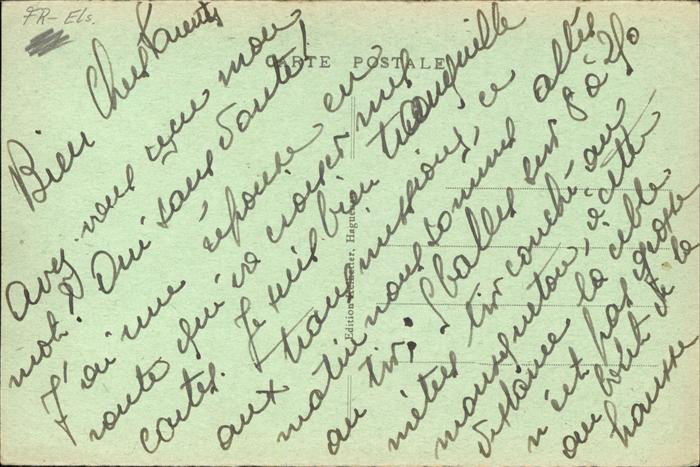 FR- Els.
CARTE POSTALE
Edition Haguenau
Bien Chers Parents
Avez vous reçu mon
mot? Oui sans doute!
J'ai une réponse en
route qui va croiser mes
cartes. Je suis bien tranquille
aux transmissions, ce
matin nous sommes allés
au tir; 8 balles sur 8 à 250
mètres tir couché au
mousqueton, à cette
distance la cible
n'est pas grosse
au bout de la
hausse